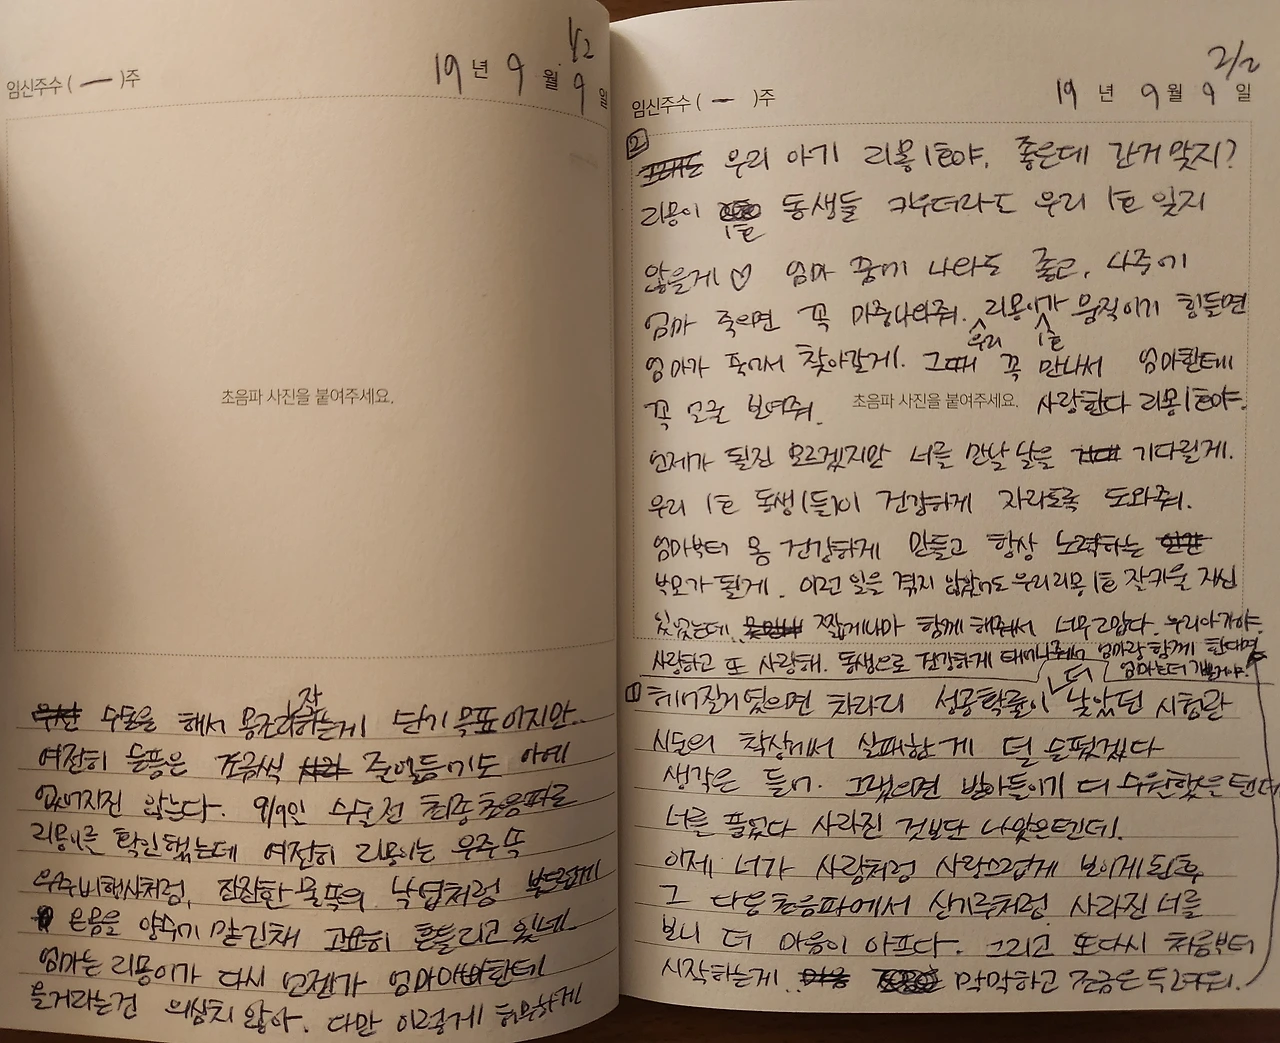 임신주수 ( ー )주
1/2
19 년 9 월 9 일
초음파 사진을 붙여주세요.
수술을 해서 몽지 하는게 단기 목표이지만..
작
여전히 슬픔은 조금씩 줄어들기도 아예
없어지진 않는다. 9/9일 수술전 최종초음파로
리몽이를 확인했는데 여전히 리몽이는 우주 속
우주비행사처럼, 잔잔한 물속의 낙엽처럼
온몸을 양수에 맡긴채 고요히 흔들리고 있네.
엄마는 리몽이가 다시 언젠가 엄마아빠한테
올거라는건 의심치 않아. 다만 이렇게 허무하게
2/2
임신주수 ( ー )주
19 년 9 월 9 일
②
우리 아기 리몽1호야. 좋은데 간거 맞지?
리몽이 동생들 키우더라도 우리 1호 잊지
1호
않을게♡ 엄마 꿈에 나와도 좋고, 나중에
엄마 죽으면 꼭 마중나와줘. 리몽이가 움직이기 힘들면
우리 1호
엄마가 찾아갈게. 그때 꼭 만나서 엄마한테
꼭 얼굴 보여줘. 초음파 사진을 붙여주세요. 사랑한다 리몽1호야.
언제가 될진 모르겠지만 너를 만날 날을 기다릴게.
우리 1호 동생(들)이 건강하게 자라도록 도와줘.
엄마부터 몸 건강하게 만들고 항상 노력하는
부모가 될게. 이런 일을 겪지 않았어도 우리 리몽 1호 잘키울 자신
있었는데. 짧게나마 함께 해줘서 너무 고맙다. 우리아가야.
사랑하고 또 사랑해. 동생으로 건강하게 태어나줘서 엄마랑 함께 한다면
엄마는 더 기쁠거야.
① 헤어질거였으면 차라리 성공확률이 낮았던 시험관
더
시도의 착상에서 실패한게 덜 슬펐겠다
생각은 들어. 그랬으면 받아들이기 더 수월했을텐데
너를 품었다 사라진 것보단 나았을텐데.
이제 너가 사람처럼 사랑스럽게 보이게된 후
그 다음 초음파에서 신기루처럼 사라진 너를
보니 더 마음이 아프다. 그리고 또다시 처음부터
시작하는게.. 막막하고 조금은 두려워.